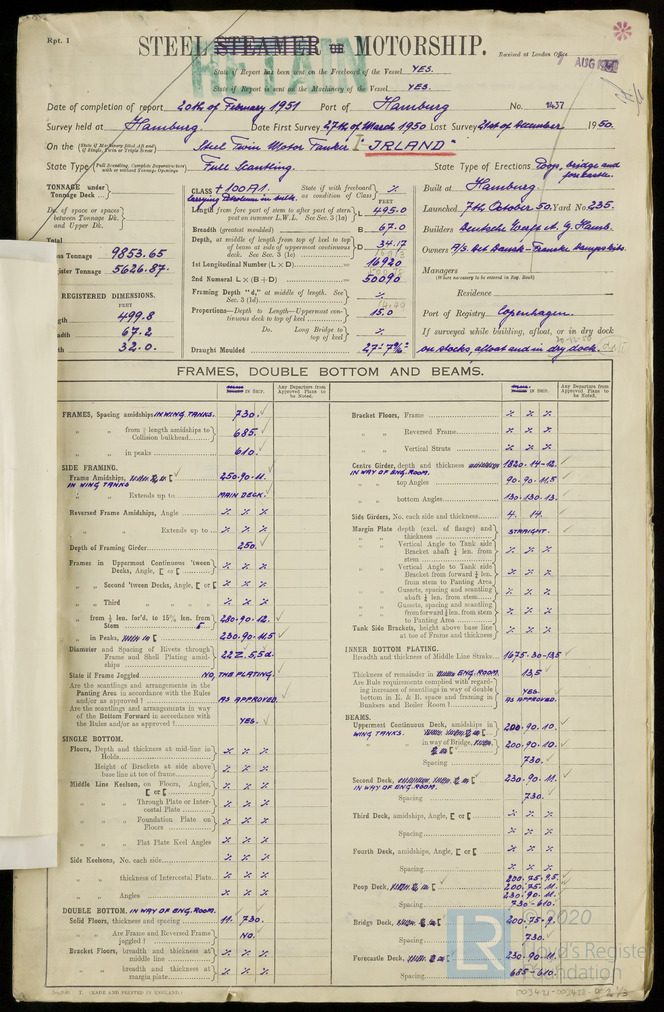 Rpt. 1
STEEL STEAMER OR MOTORSHIP.
RETAIN
Received at London Office
AUG 1951
State if Report has been sent on the Freeboard of the Vessel YES.
State if Report is sent on the Machinery of the Vessel YES.
Date of completion of report 20th of February 1951 Port of Hamburg No. 1437
Survey held at Hamburg. Date First Survey 27th of March 1950 Last Survey 21st of December 1950.
On the (State if Machinery fitted Aft and if Single, Twin or Triple Screw) Steel Twin Motor Tanker "IRLAND"
State Type (Full Scantling, Complete Superstructure with or without Tonnage Openings) Full Scantling. State Type of Erections Poop, bridge and forecastle.
TONNAGE under Tonnage Deck
Do. of space or spaces between Tonnage Dk. and Upper Dk.
Total
ss Tonnage 9853.65
ister Tonnage 5626.87.
REGISTERED DIMENSIONS.
FEET
gth 499.8
adth 67.2
th 32.0.
CLASS +100A1. State if with freeboard as condition of Class
Carrying Petroleum in bulk.
FEET
Length from fore part of stem to after part of stern post on summer L.W.L. See Sec. 3 (1a) L 495.0
Breadth (greatest moulded) B 67.0
Depth, at middle of length from top of keel to top of beam at side of uppermost continuous deck. See Sec. 3 (1c) D 34.17
1st Longitudinal Number (L × D) = 16920
2nd Numeral L × (B + D) = 50090
Framing Depth "d," at middle of length. See Sec. 3 (1d)
Proportions—Depth to Length—Uppermost continuous deck to top of keel 15.0
Do. Long Bridge to top of keel
Draught Moulded 27'-7 9/16"
Built at Hamburg.
Launched 7th October 50. Yard No. 235.
Builders Deutsche Werft A. G. Hamb.
Owners A/S. Det Dansk-Franske Dampskibs.
Managers
(Where necessary to be entered in Reg. Book)
Residence
Port of Registry Copenhagen.
If surveyed while building, afloat, or in dry dock
on stocks, afloat and in dry dock.
FRAMES, DOUBLE BOTTOM AND BEAMS.
IN SHIP. Any Departure from Approved Plans to be Noted.
FRAMES, Spacing amidships IN WING TANKS. 730.
" " from ⅕ length amidships to Collision bulkhead 685.
" " in peaks 610.
SIDE FRAMING.
Frame Amidships, IN WING TANKS 250.90.11.
" " Extends up to MAIN DECK.
Reversed Frame Amidships, Angle
" " Extends up to
Depth of Framing Girder 250.
Frames in Uppermost Continuous 'tween Decks, Angle, [ or [
" " Second 'tween Decks, Angle, [ or [
" " Third " " " "
" " from ⅕ len. for'd. to 15% len. from Stem 280.90.12.
" " in Peaks, 230.90.11.5
Diameter and Spacing of Rivets through Frame and Shell Plating amidships 22 Z. 5.5d.
State if Frame Joggled NO, THE PLATING.
Are the scantlings and arrangements in the Panting Area in accordance with the Rules and/or as approved? AS APPROVED.
Are the scantlings and arrangements in way of the Bottom Forward in accordance with the Rules and/or as approved? YES.
SINGLE BOTTOM.
Floors, Depth and thickness at mid-line in Holds
Height of Brackets at side above base line at toe of frame
Middle Line Keelson, on Floors, Angles, [ or [
" " Through Plate or Intercostal Plate
" " Foundation Plate on Floors
" " Flat Plate Keel Angles
Side Keelsons, No. each side
" " thickness of Intercostal Plate
" " Angles
DOUBLE BOTTOM. IN WAY OF ENG. ROOM.
Solid Floors, thickness and spacing 11. 730.
" " Are Frame and Reversed Frame joggled? NO.
Bracket Floors, breadth and thickness at middle line
" " breadth and thickness at margin plate
IN SHIP. Any Departure from Approved Plans to be Noted.
Bracket Floors, Frame
" " Reversed Frame
" " Vertical Struts
Centre Girder, depth and thickness IN WAY OF ENG. ROOM. 1820.14-12.
" " top Angles 90.90.11,5
" " bottom Angles 130.130.13.
Side Girders, No. each side and thickness 4. 14.
Margin Plate depth (excl. of flange) and thickness STRAIGHT.
" " Vertical Angle to Tank side Bracket abaft ¼ len. from stem
" " Vertical Angle to Tank side Bracket from forward ¼ len. from stem to Panting Area
" " Gussets, spacing and scantling abaft ¼ len. from stem
" " Gussets, spacing and scantling from forward ¼ len. from stem to Panting Area
Tank Side Brackets, height above base line at toe of Frame and thickness
INNER BOTTOM PLATING.
Breadth and thickness of Middle Line Strake 1675.30-13,5
Thickness of remainder in ENG. ROOM. 13,5
Are Rule requirements complied with regarding increase of scantlings in way of double bottom in E. & B. space and framing in Bunkers and Boiler Room? YES. AS APPROVED.
BEAMS.
Uppermost Continuous Deck, amidships in WING TANKS. 200.90.10.
" " in way of Bridge, 200.90.10.
Spacing 730.
Second Deck, IN WAY OF ENG. ROOM. 230.90.11.
Spacing 730.
Third Deck, amidships, Angle, [ or [
Spacing
Fourth Deck, amidships, Angle, [ or [
Spacing
Poop Deck, 200.75.9,5.
200.75.11.
230.90.11.
Spacing 730-610.
Bridge Deck, 200.75.9.
Spacing 730.
Forecastle Deck, 230.90.11.
Spacing 685-610.
T. (MADE AND PRINTED IN ENGLAND.)
LR
2020
Lloyd's Register
Foundation